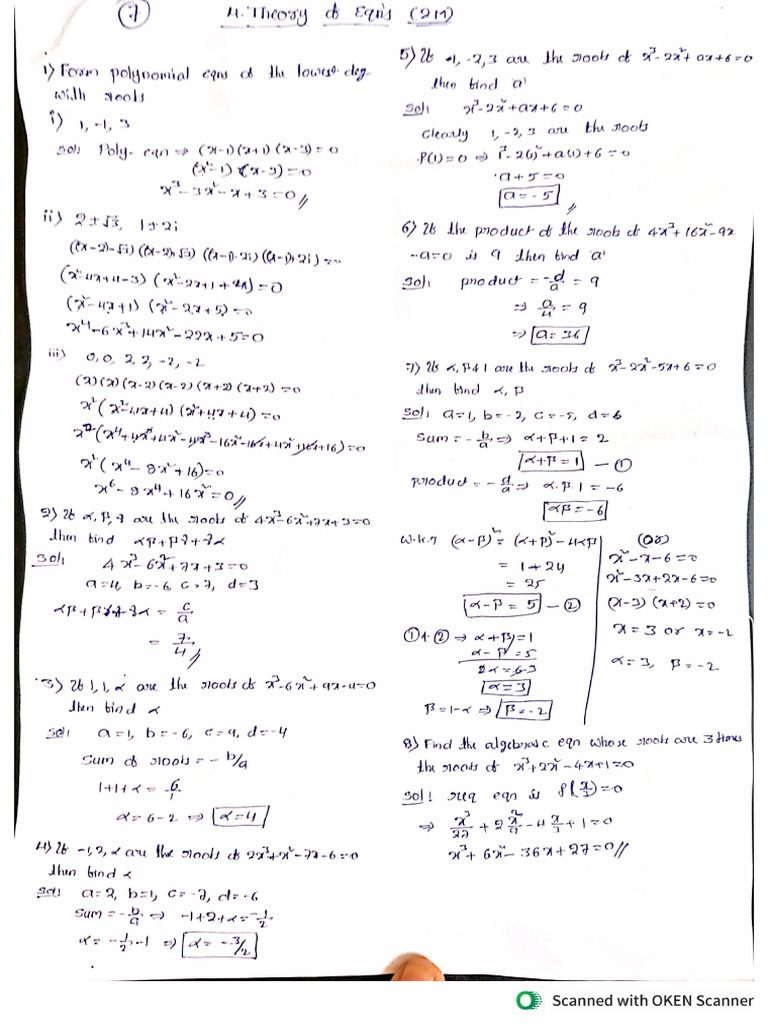 7
4. Theory of Eqn's (2M)
1) Form polynomial eqns of the lowest deg-
with roots
i) 1, -1, 3
Sol: Poly- eqn ⇒ (x-1)(x+1)(x-3)=0
(x²-1)(x-3)=0
x³-3x²-x+3=0//
ii) 2±√3, 1±2i
((x-2)-√3)((x-2)+√3)((x-1)-2i)((x-1)+2i)=0
(x²-4x+4-3)(x²-2x+1+4)=0
(x²-4x+1)(x²-2x+5)=0
x⁴-6x³+14x²-22x+5=0
iii) 0, 0, 2, 2, -2, -2
(x)(x)(x-2)(x-2)(x+2)(x+2)=0
x²(x²-4x+4)(x²+4x+4)=0
x²(x⁴+4x³+4x²-4x³-16x²-16x+4x²+16x+16)=0
x²(x⁴-8x²+16)=0
x⁶-8x⁴+16x²=0//
2) If α, β, γ are the roots of 4x³-6x²+7x+3=0
then find αβ+βγ+γα
Sol: 4x³-6x²+7x+3=0
a=4, b=-6, c=7, d=3
αβ+βγ+γα = c/a
= 7/4//
3) If 1, 1, α are the roots of x³-6x²+9x-4=0
then find α
Sol: a=1, b=-6, c=9, d=-4
Sum of roots = -b/a
1+1+α = 6/1
α=6-2 ⇒ α=4
4) If -1, 2, α are the roots of 2x³+x²-7x-6=0
then find α
Sol: a=2, b=1, c=-7, d=-6
Sum = -b/a ⇒ -1+2+α=-1/2
α=-1/2-1 ⇒ α=-3/2
5) If 1, -2, 3 are the roots of x³-2x²+ax+6=0
then find 'a'
Sol: x³-2x²+ax+6=0
Clearly 1, -2, 3 are the roots
f(1)=0 ⇒ 1³-2(1)²+a(1)+6=0
a+5=0
a=-5
//
6) If the product of the roots of 4x³+16x²-9x
-a=0 is 9 then find 'a'
Sol: product = -d/a = 9
⇒ a/4 = 9
⇒ a=36
7) If α, β & 1 are the roots of x³-2x²-5x+6=0
then find α, β
Sol: a=1, b=-2, c=-5, d=6
Sum = -b/a ⇒ α+β+1 = 2
α+β=1 — ①
product = -d/a ⇒ α.β.1 = -6
αβ=-6
W.K.T (α-β)² = (α+β)²-4αβ
= 1+24
= 25
α-β = 5 — ②
①+② ⇒ α+β=1
α-β=5
2α=6
α=3
β=1-α ⇒ β=-2
(Or)
x²-x-6=0
x²-3x+2x-6=0
(x-3)(x+2)=0
x=3 or x=-2
α=3, β=-2
8) Find the algebraic eqn whose roots are 3 times
the roots of x³+2x²-4x+1=0
Sol: req eqn is f(x/3)=0
⇒ x³/27 + 2x²/9 - 4x/3 + 1=0
x³+6x²-36x+27=0//
Scanned with OKEN Scanner